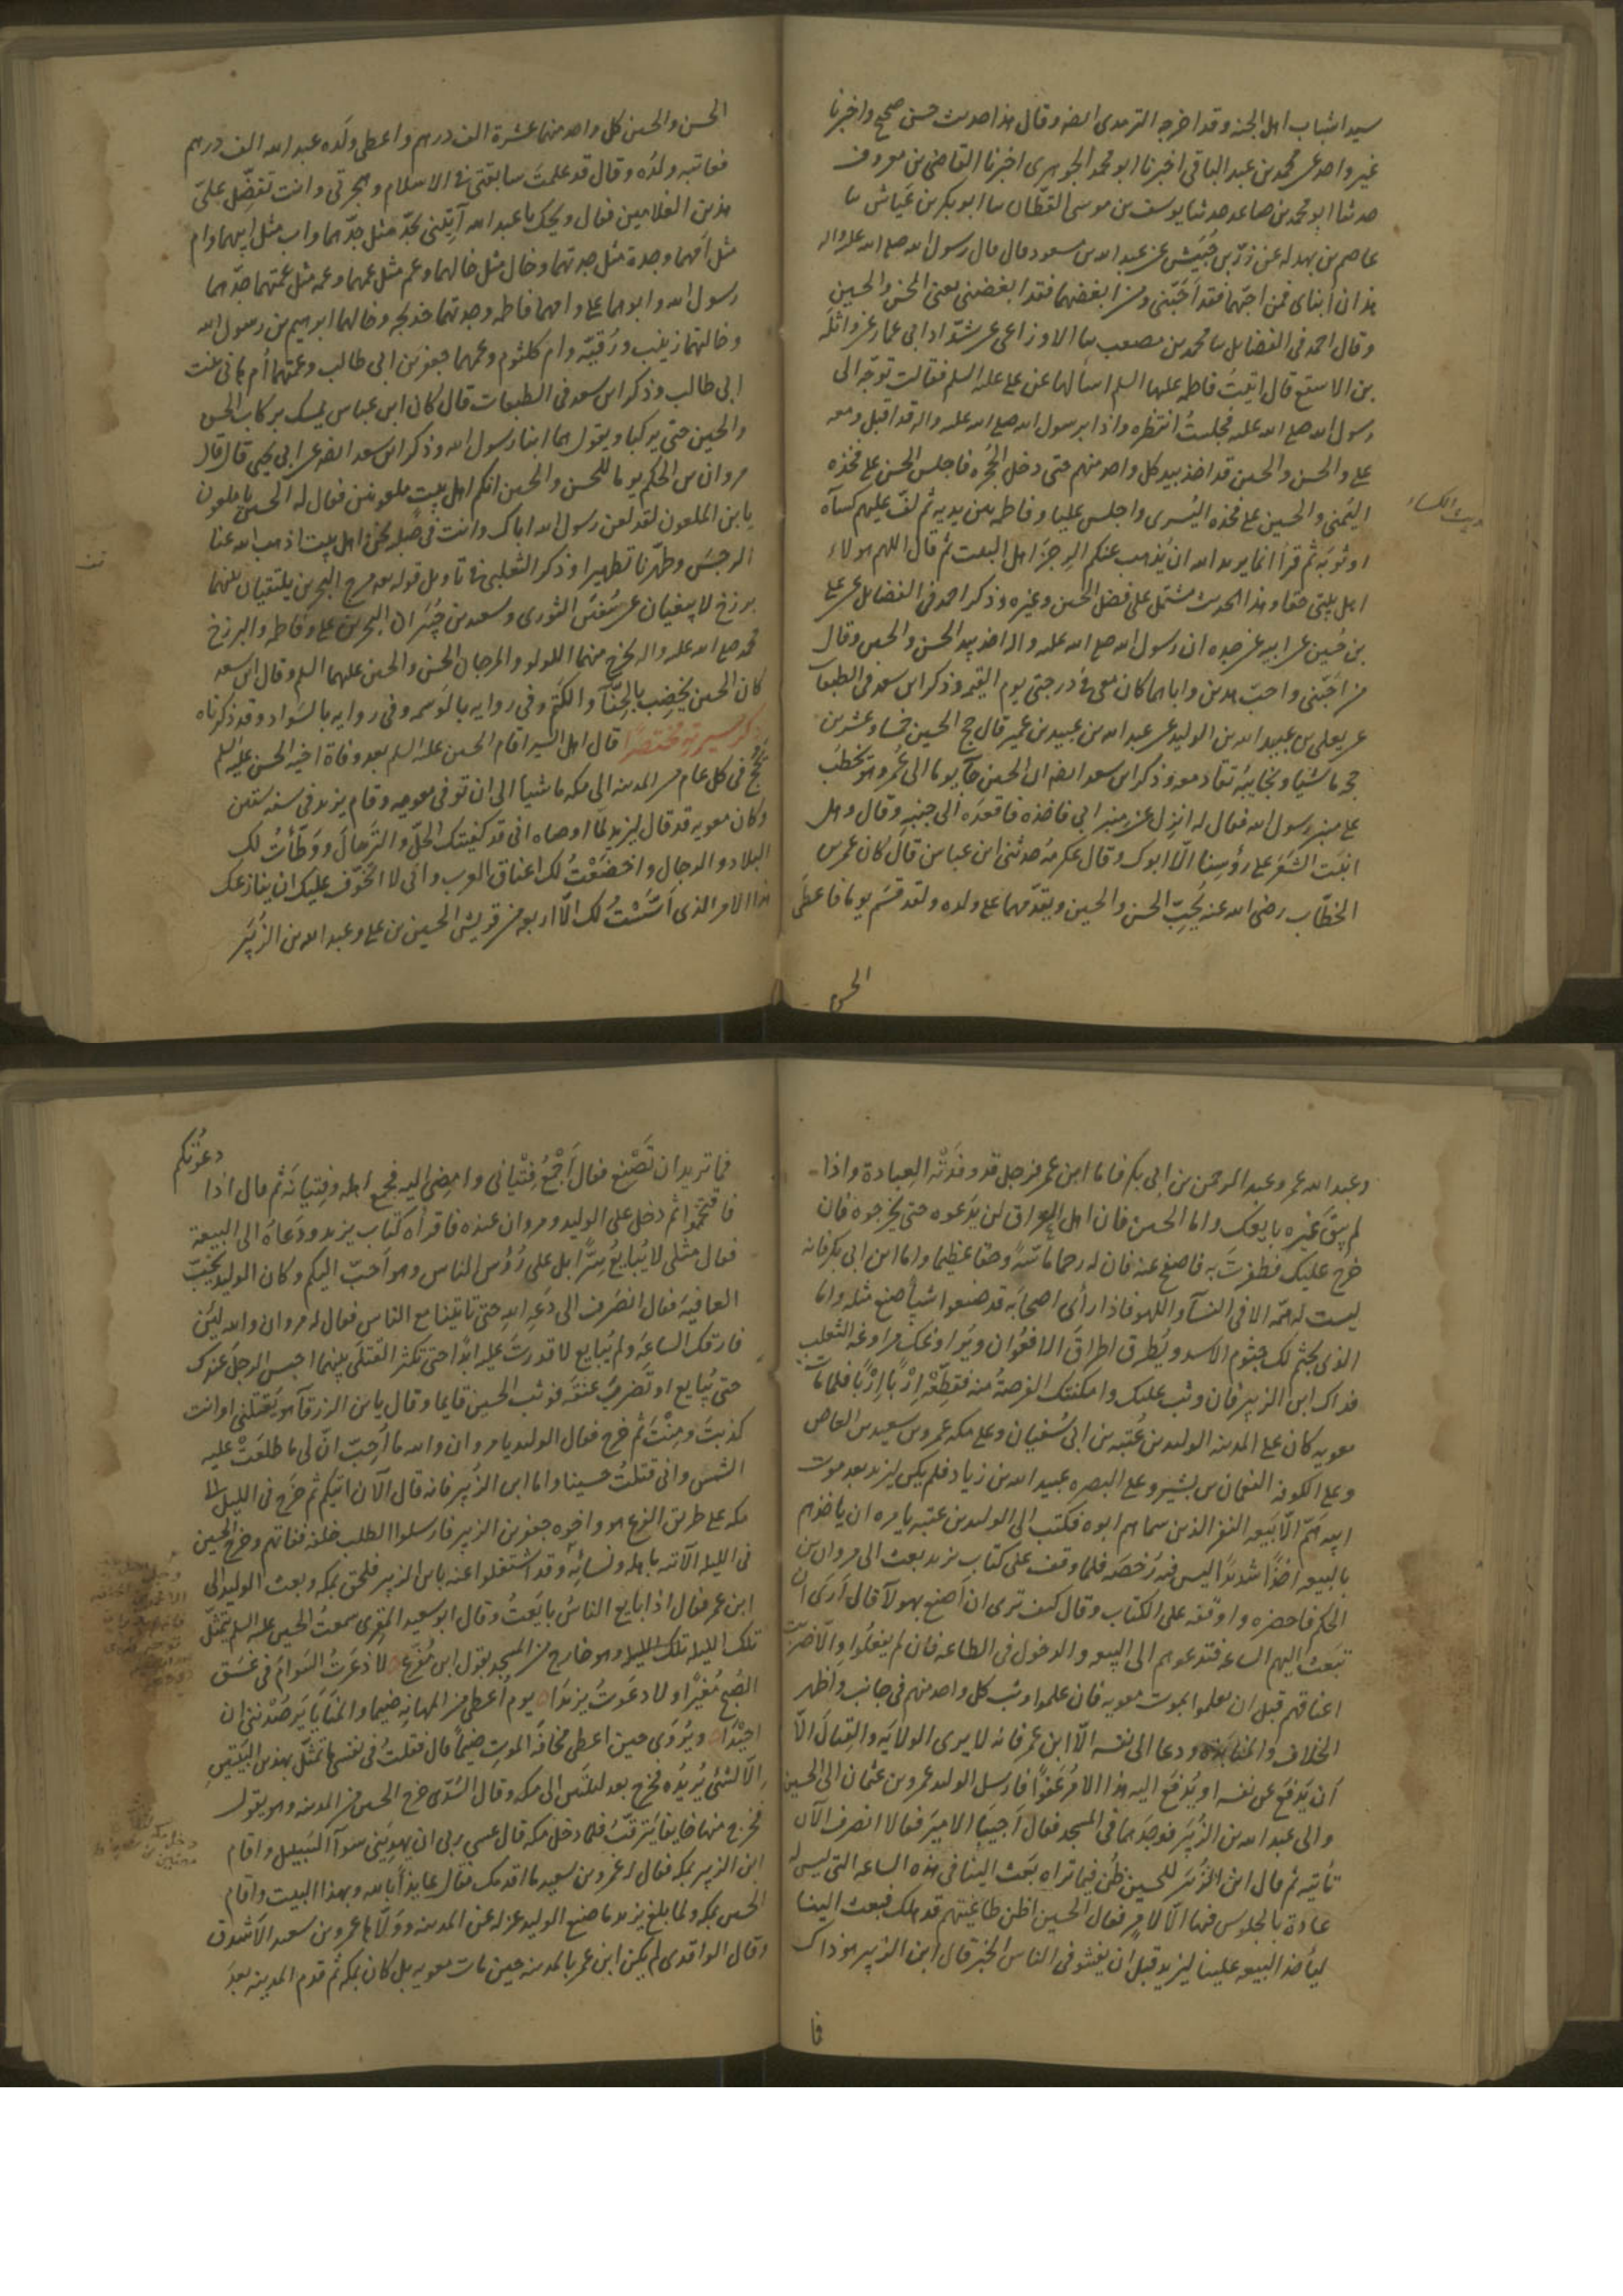 سيدا شباب اهل الجنه وقد اخرجه الترمدى ايضه وقال هذا حديث حسن صحيح واخبرنا
غير واحد عن محمد بن عبد الباقى اخبرنا ابو محمد الجوهرى اخبرنا القاضى بن معروف
حدثنا ابو محمد بن صاعد حدثنا يوسف بن موسى القطّان سا ابو بكر بن عيّاش سا
عاصم بن بهدله عن زرّ بن حُبَيش عن عبد الله بن مسعود قال قال رسول الله صلى الله عليه واله
هذان ابناى فمن احبّهما فقد احَبّنى ومن ابغضهما فقد ابغضنى يعنى الحسن والحسين
وقال احمد فى الفضايل سا محمد بن مصعب سا الاوزاعى عن شدّاد ابى عمار عن واثله
بن الاسقع قال اتيتُ فاطمه عليها السلم اسالها عن على عليه السلم فقالت توجّه الى
رسول الله صلى الله عليه فجلستُ انتظره واذا برسول الله صلى الله عليه واله قد اقبل ومعه
على والحسن والحسين قد اخذ بيد كل واحد منهم حتى دخل الحُجُره فاجلس الحسن على فخذه
اليُمنى والحسين على فخذه اليُسرى واجلس عليا وفاطمه بين يديه ثم لفّ عليهم كسآه
حديث الكساء
او ثوبَه ثم قرأ انما يريد الله ان يُذهب عنكم الرِجزَ اهل البيت ثم قال اللهم هولاء
اهل بيتى حقا وهذا الحديث مشتمل على فضل الحسن وغيره وذكر احمد فى الفضايل عن على
بن حُسين عن ابيه عن جده ان رسول الله صلى الله عليه واله اخذ بيد الحسن والحسين وقال
من احَبّنى واحبّ هذين واباهما كان معى فى درجتى يوم القيمه وذكر ابن سعد فى الطبقات
عن يعلى بن عبيد الله بن الوليد عن عبد الله بن عبيد بن عمير قال حج الحسين خمسا وعشرين
حجه ماشيا ونجايبُه تقاد معه وذكر ابن سعد ايضه ان الحسين جآ يوما الى عُمر وهو يخطب
على منبر رسول الله فقال له انزل عن منبر ابى فاخذه فاقعدَه الى جنبِه وقال وهل
انبَتَ الشَعَر على رؤسِنا الّا ابوك وقال عكرمهُ حدثنى ابن عباس قال كان عمر بن
الخطّاب رضى الله عنه يُحِبّ الحسن والحسين ويقدّمهما على ولده ولقد قسَم يوما فاعطى
الحسن
الحسن والحسين كل واحد منهما عشرة الف درهم واعطى ولَده عبد الله الف درهم
فعاتبه ولدُه وقال قد علمتَ سابقتى فى الاسلام وهجرتى وانت تفضّل علىّ
هذين الغلامين فقال ويحك يا عبد الله اَيِتِنى بجدّ مثل جدّهما واب مثل ابيهما وام
مثل امّهما وجدة مثل جدتهما وخال مثل خالهما وعم مثل عمهما وعمه مثل عمّتهما جدّهما
رسول الله وابوهما على وامهما فاطمه وجدتهما خديجه وخالهما ابرهيم بن رسول الله
وخالتهما زينب ورُقيّه وام كلثوم وعمهما جعفر بن ابى طالب وعمّتهما اُم هانى بنت
ابى طالب وذكر ابن سعد فى الطبقات قال كان ابن عباس يمسك بركاب الحسن
والحسين حتى يركبا ويقول هما ابنا رسول الله وذكر ابن سعد ايضه عن ابى يحيى قال قال
مروان بن الحكم يوما للحسن والحسين انكم اهل بيت ملعونين فقال له الحسن يا ملعون
يا بن الملعون لقد لعن رسول الله اباك وانت فى صُلبه نحن اهل بيت اذهب الله عنا
الرجسَ وطهّرنا تطهيرا وذكر الثعلبى فى تاويل قوله بعد مرج البحرين يلتقيان بينهما
برزخ لا يبغيان عن سُفيَن الثورى وسعيد بن جُبَيَر ان البحرين على وفاطمه والبرزخ
محمد صلى الله عليه واله يخرج منهما اللولو والمرجان الحسن والحسين عليهما السلم وقال ابن سعد
كان الحسين يخضِب بالحِنّآ والكَتَم وفى روايه بالوَسمه وفى روايه بالسَواد وقد ذكرناه
ذكر سيرته مختصرًا قال اهل السير اقام الحسين عليه السلم بعد وفاة اخيه الحسن عليه السلم
يحُجّ فى كل عام من المدينه الى مكه ماشيا الى ان توفى معويه وقام يزيد فى سنه ستين
وكان معويه قد قال ليزيد لمّا اوصاه انى قد كفيتك الحلّ والترحالَ ووَطّأتُ لك
البلاد والرجال واخضَعْتُ لك اعناق العرب وانى لا اتخوّف عليك ان ينازعك
هذا الامر الذى اَسّسْتُ لك الّا اربعه من قريش الحسين بن على وعبد الله بن الزُبَيَر
وعبد الله عمر وعبد الرحمن بن ابى بكر فاما ابن عمر فرجل قد وقذَتْه العبادة واذا
لم يبقَ غيره بايعك واما الحسين فان اهل العراق لن يدَعوه حتى يخرجوه فان
خرج عليك فظفرتَ به فاصفح عنه فان له رحما ماسّةً وحقا عظيما واما ابن ابى بكر فانه
ليست له همّه الا فى النسآ واللهو فاذا رأى اصحابَه قد صنعوا شياً صنع مثله واما
الذى يجثم لك جثوم الاسد ويَطرق اطراقَ الافعُوان ويُراوغك مراوغه الثعلب
فذاك ابن الزبير فان وثب عليك وامكنتك الفرصةُ منه فقطِّعْه اِرْبًا اِرْبًا فلما مات
معويه كان على المدينه الوليد بن عُتبه بن ابى سُفيان وعلى مكه عمرو بن سعيد بن العاص
وعلى الكوفه النعمان بن بشير وعلى البصره عبيد الله بن زياد فلم يكن ليزيد بعد موت
ابيه همّ الّا بَيعه النفر الذين سماهم ابوه فكتب الى الوليد بن عتبه يامره ان ياخذهم
بالبيعه اخذًا شديدًا ليس فيه رُخصَه فلما وقف على كتاب يزيد بعث الى مروان بن
الحكم فاحضره واوقفه على الكتاب وقال كيف ترى ان اصنع بهولآ قال ارَى ان
تبعَث اليهم الساعه فتدعوهم الى البيعه والدخول فى الطاعه فان لم يفعلوا والّا ضربت
اعناقهم قبل ان يعلموا بموت معويه فان علموا وثب كل واحد منهم فى جانب واظهر
الخلاف والمنابذة ودعا الى نفسه الّا ابن عمر فانه لا يرى الولايَه والقتالَ الّا
أن يَدفعَ عن نفسه او يُدْفَع اليه هذا الامرُ عَفوًا فارسل الوليد عمرو بن عثمان الى الحسين
والى عبد الله بن الزُبَيَر فوجدهما فى المسجد فقال اَجيبَا الاميرَ فقالا انصرف الآن
نأتيه ثم قال ابن الزُبَير للحسين ظُن فيما تراه بعَث الينا فى هذه الساعه التى ليس له
عادة بالجلوس فيها الّا لامرٍ فقال الحسين اظن طاغيتهم قد هلك فبعث الينا
لياخذ البيعه علينا ليزيد قبل ان يفشو فى الناس الخبر قال ابن الزبير هو ذاك
فا
فما تريد ان تَصْنع فقال اَجْمَعُ فِتْيانى وامضى اليه فجمع اهله وفِتيانَه ثم قال اذا دعوتكم
فاقتحموا ثم دخل على الوليد ومروان عنده فاقرأه كتاب يزيد ودَعاهُ الى البيعة
فقال مثلى لا يُبايعُ سِرًّا بل على رُؤُس الناس وهو اَحبّ اليكم وكان الوليد يُحبّ
العافيَه فقال انصَرف الى دَعه اللهِ حتى تاتينا مع الناس فقال له مروان والله ليَن
فارقك الساعَه ولم يُبايع لا قدرتَ عليه ابدًا حتى تكثر القتلى بينهما احبس الرجل عندك
حتى يُبايع او تضربَ عنقه فوثب الحسين قايما وقال يا بن الزرقآ هو يَقتلنى او انت
كذبتَ ومِنْتَ ثم خرج فقال الوليد يا مروان والله ما اُحِبّ انّ لى ما طلعَتْ عليه
الشمس وانى قتلتُ حسينا واما ابن الزُبَير فانه قال الآن اتيكم ثم خرج فى الليل الى
مكه على طريق الفرع هو واخوه جعفر بن الزبير فارسلوا الطلب خلفه ففاتهم وخرج الحسين
فى الليله الآتيه باهله ونسائِه وقد اشتغلوا عنه بابن الزبير فلحق بمكه وبعث الوليد الى
ابن عمر فقال اذا بايع الناسُ بايَعتُ وقال ابو سعيد المقرى سمعتُ الحسين عليه السلم يتمثّل
تلك الليله تلك الليله وهو خارج من المسجد بقول ابن مُفَرّغ لا ذعَرتُ السَوامَ فى غسَق
الصُبح مُغيرًا ولا دعَوتُ يزيدَا يوم اُعطى من المهانَه ضيما والمنَايَا يَرصُدْنَنى ان
احيْدَا ويُروَى حين اعطى مخافَه الموتِ ضيمًا قال فقلتُ فى نفسى ما تمثّل بهذين البيتَينِ
الّا لشئٍ يُريدُه فخرج بعد ليلتين الى مكه وقال السُدّى خرج الحسين من المدينه وهو يقول
فخرج منها خايفا يترقّب فلما دخل مكه قال عسى ربى ان يهديَنى سوآ السَبيل واقام
ابن الزبير بمكه فقال له عمرو بن سعيد ما اقدمك فقال عايذًا بالله وبهذا البيت واقام
الحسين بمكه ولما بلغ يزيد ما صنع الوليد عزله عن المدينه وولّاها عمرو بن سعيد الاشدق
وقال الواقدى لم يكن ابن عمر بالمدينه حين مات معويه بل كان بمكه ثم قدم المدينه بعدَ